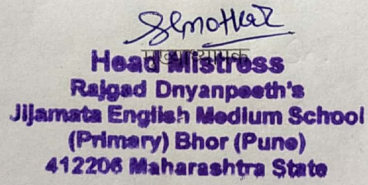 मुख्याध्यापक
Head Mistress
Rajgad Dnyanpeeth's
Jijamata English Medium School
(Primary) Bhor (Pune)
412206 Maharashtra State